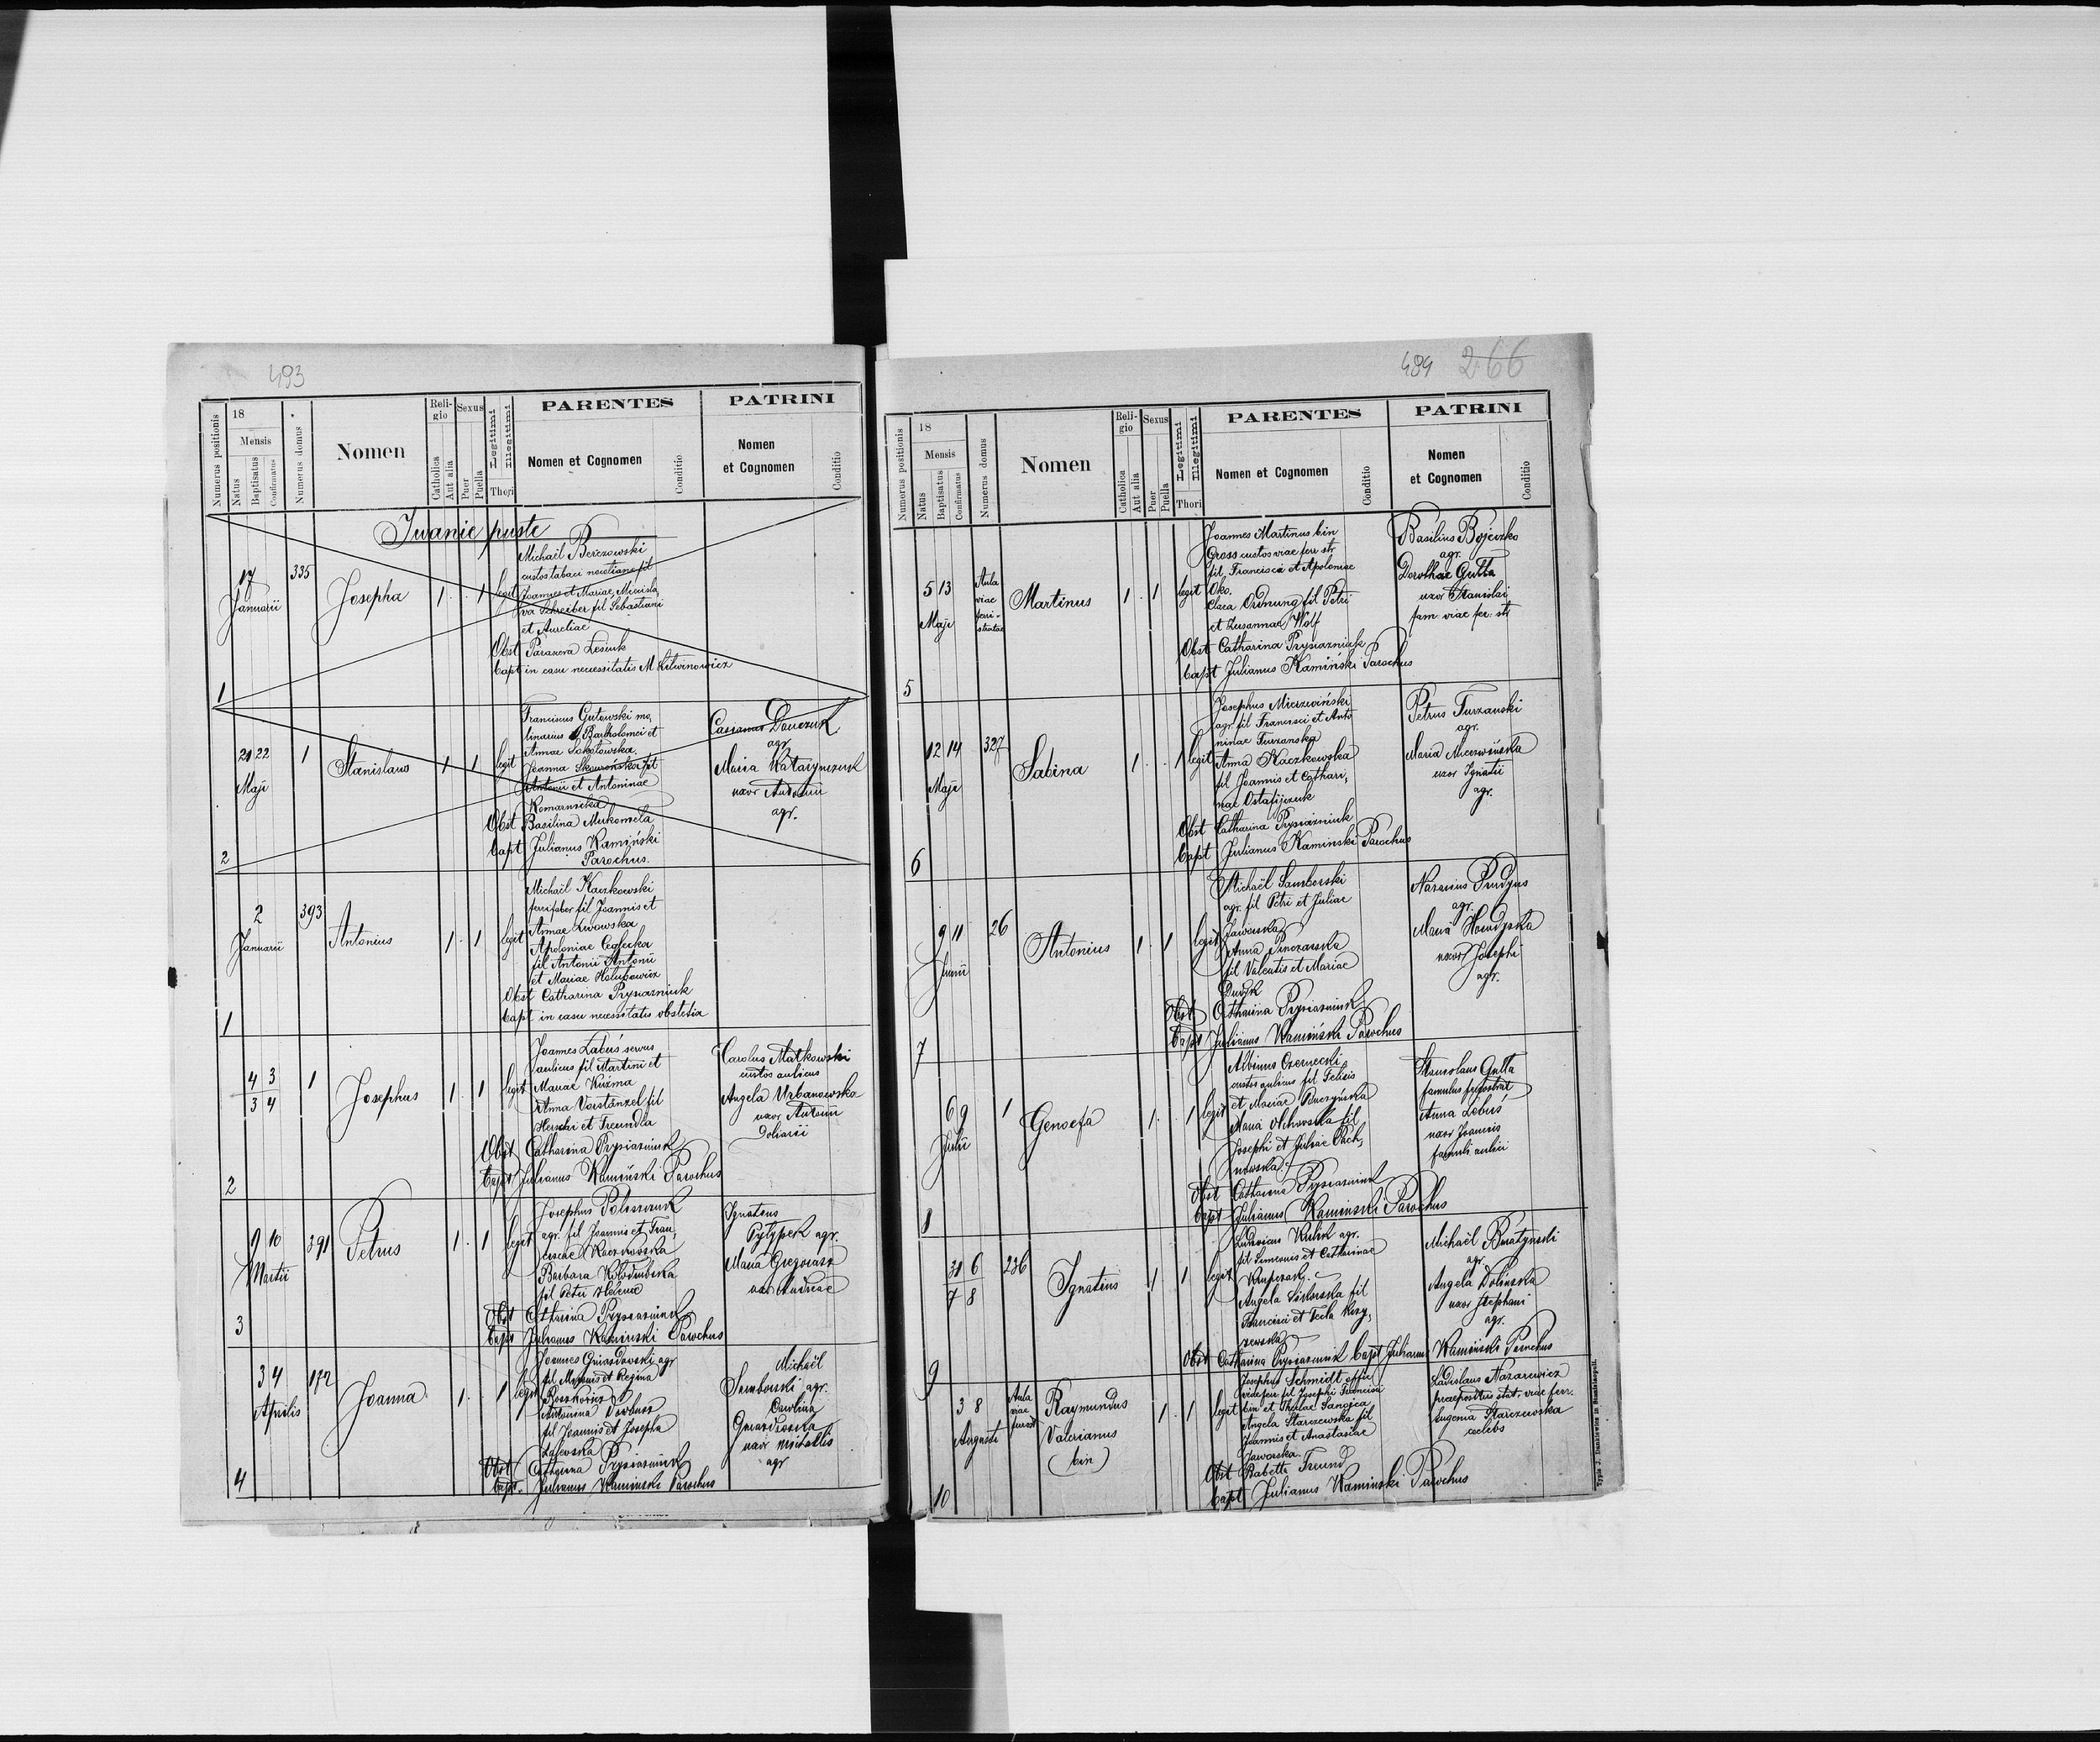 493
Numerus positionis
18
Mensis
Natus
Baptisatus
Confirmatus
Numerus domus
Nomen
Religio
Catholica
Aut alia
Sexus
Puer
Puella
Legitimi
Illegitimi
Thori
PARENTES
Nomen et Cognomen
Conditio
PATRINI
Nomen
et Cognomen
Conditio
Iwanie puste
1
17
Januarii
335
Josepha
1
1
legit
Michaël Berezowski
custos tabaci
Joannes et Mariae,
Schreiber fil Sebastiani
et Aureliae
Obst Paraxera Lesiuk
bapt in casu necessitatis M Litwinowicz
2
21 22
Maji
1
Stanislaus
1
1
legit
Franciscus Gutowski mo,
linarius fil Bartholomei et
Annae Sokołowska.
Joanna Skowrońska fil
Antonii et Antoninae
Komarnicka
Obst Basilina
bapt Julianus Kamiński
Parochus.
agr.
Maria Katarynczuk
uxor Antonii
agr.
1
2
Januarii
393
Antonius
1
1
legit
Michaël Kaczkowski
ferrifaber fil Joannis et
Annae Lwowska
Apoloniae Ceglecka
fil Antonii Antonii
et Mariae Holubowicz
Obst Catharina Prysiazniuk
bapt in casu necessitatis obstetia
2
4 3
3 4
1
Josephus
1
1
legit
Joannes Labuś servus
aulicus fil Martini et
Mariae Kuźma
Anna fil
Herschi et Freundla
Obst Catharina Prysiazniuk
bapt Julianus Kamiński Parochus
Carolus Matkowski
custos aulicus
Angela Urbanowska
uxor Antonii
doliarii
3
9 10
Martii
391
Petrus
1
1
legit
Josephus
agr. fil Joannis et Fran,
ciscae Kaczkowska
Barbara
fil Petri Helenae
Obst Catharina Prysiazniuk
bapt Julianus Kamiński Parochus
Ignatius
Pylypek agr.
Maria Gregorasz
uxor Andreae
4
3 4
Aprilis
172
Joanna
1
1
legit
Joannes Gwiazdowski agr
fil et Regina
Antonina
fil Joannis et Josepha
Zalewska
Obst Catharina Prysiazniuk
bapt. Julianus Kamiński Parochus
Michaël
Samborski agr.
Carolina
Gwiazdowska
uxor Michaëlis
agr
494 266
Numerus positionis
18
Mensis
Natus
Baptisatus
Confirmatus
Numerus domus
Nomen
Religio
Catholica
Aut alia
Sexus
Puer
Puella
Legitimi
Illegitimi
Thori
PARENTES
Nomen et Cognomen
Conditio
PATRINI
Nomen
et Cognomen
Conditio
5
5 13
Maji
Aula
viae
ferri-
stratae
Martinus
1
1
legit
Joannes Martinus bin
Gross custos viae ferr str
fil Francisci et Apoloniae
Oko.
Clara Ordnung fil Petri
et Zusannae Wolf
Obst Catharina Prysiazniuk
bapt Julianus Kamiński Parochus
Basilius Bojeczko
agr.
Dorothae Gutta
uxor Stanislai
fam. viae fer. str
6
12 14
Maji
327
Sabina
1
1
legit
Josephus Mierzwiński
agr fil Francisci et Anto
ninae Turzanska
Anna Kaczkowska
fil Joannis et Cathari,
nae Ostafijczuk
Obst Catharina Prysiazniuk
bapt Julianus Kamiński Parochus
Petrus Turzanski
agr.
Maria Mierzwińska
uxor Ignatii
agr.
7
9 11
Junii
26
Antonius
1
1
legit
Michaël Samborski
agr. fil Petri et Juliae
Jaworska
Anna
fil Valentis et Mariae
Obst Catharina Prysiazniuk
bapt Julianus Kamiński Parochus
Nazarius Prudyus
agr.
Maria
uxor Josephi
agr.
8
6 9
Julii
1
Genoefa
1
1
legit
Albinus Czernecki
custos aulicus fil Felicis
et Mariae
Maria fil
Josephi et Juliae
Obst Catharina Prysiazniuk
bapt Julianus Kamiński Parochus
Stanislaus Gutta
famulus
Anna Łabuś
uxor Joannis
famuli aulici
9
31 6
7 8
236
Ignatius
1
1
legit
Ludovicus Kulik agr.
fil Simeonis et Catharinae
Angela fil
Francisci et Tecla
Obst Catharina Prysiazniuk bapt Julianus Kamiński Parochus
Michaël Buratynski
agr.
Angela Dolinska
uxor Stephani
agr.
10
3 8
Augusti
Aula
viae
Raymundus
Valerianus
bin
1
1
legit
Josephus Schmidt
fil Josephi Francisci
bin et Theclae Sanojca
Angela Starczewska fil
Joannis et Anastasiae
Jaworska.
Obst Babette Freund
bapt Julianus Kamiński Parochus
Ladislaus Nazarewicz
praepositus stat. viae ferr.
Eugenia Starczewska
caelebs
Typis J. Dankiewicz in Stanislaopoli.